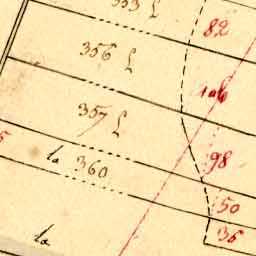 353 L
82
356 L
106
357 L
98
la 360
50
36
la